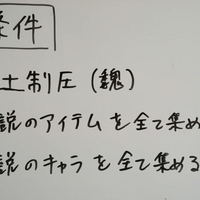 条件
土制圧(魏)
説のアイテムを全て集め
説のキャラを全て集める